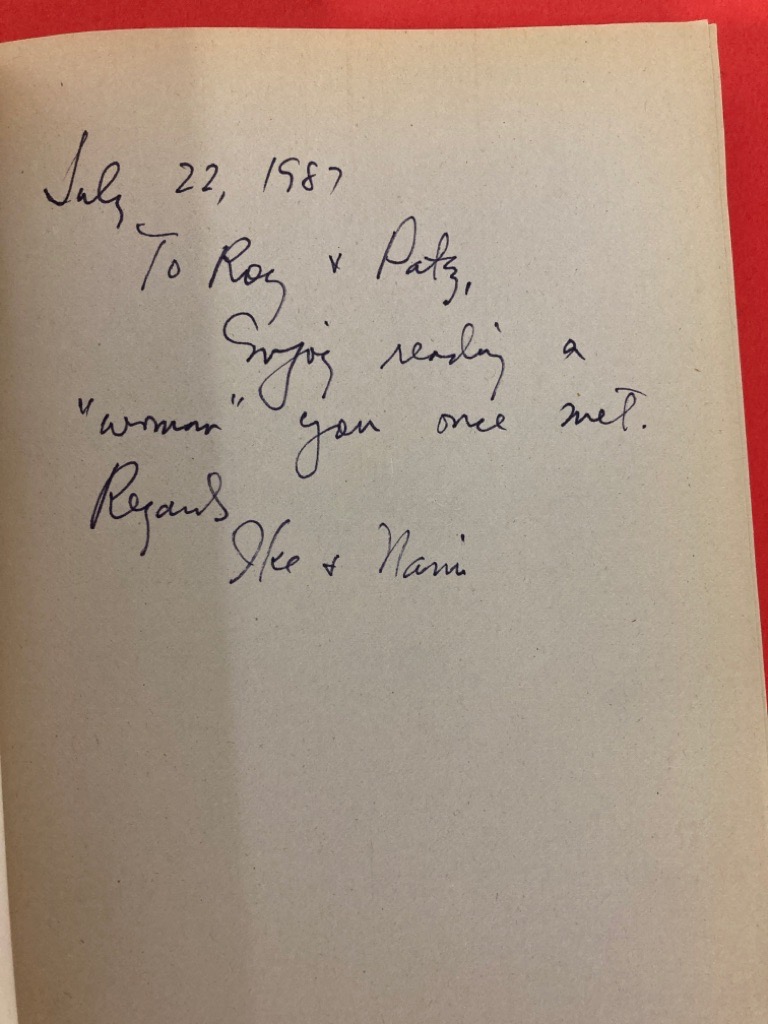 July 22, 1987
To Roy & Patz,
Enjoy reading a
"woman" you once met.
Regards
Ike & Nami